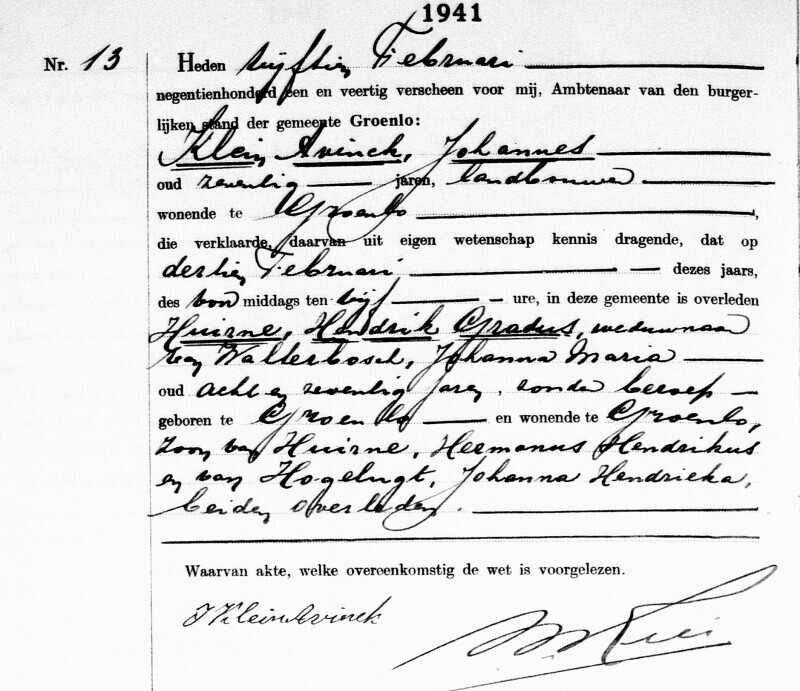 1941
Nr. 13 Heden vijftien Februari
negentienhonderd een en veertig verscheen voor mij, Ambtenaar van den burger-
lijken stand der gemeente Groenlo:
Klein Avinck, Johannes
oud zeventig jaren, landbouwer
wonende te Groenlo,
die verklaarde, daarvan uit eigen wetenschap kennis dragende, dat op
dertien Februari dezes jaars,
des voor middags ten vijf ure, in deze gemeente is overleden
Huirne, Hendrik Gradus, weduwnaar
van Walterbosch, Johanna Maria
oud acht en zeventig jaren, zonder beroep
geboren te Groenlo en wonende te Groenlo,
zoon van Huirne, Hermanus Hendrikus
en van Hogelugt, Johanna Hendrieka,
beiden overleden.
Waarvan akte, welke overeenkomstig de wet is voorgelezen.
J Klein Avinck